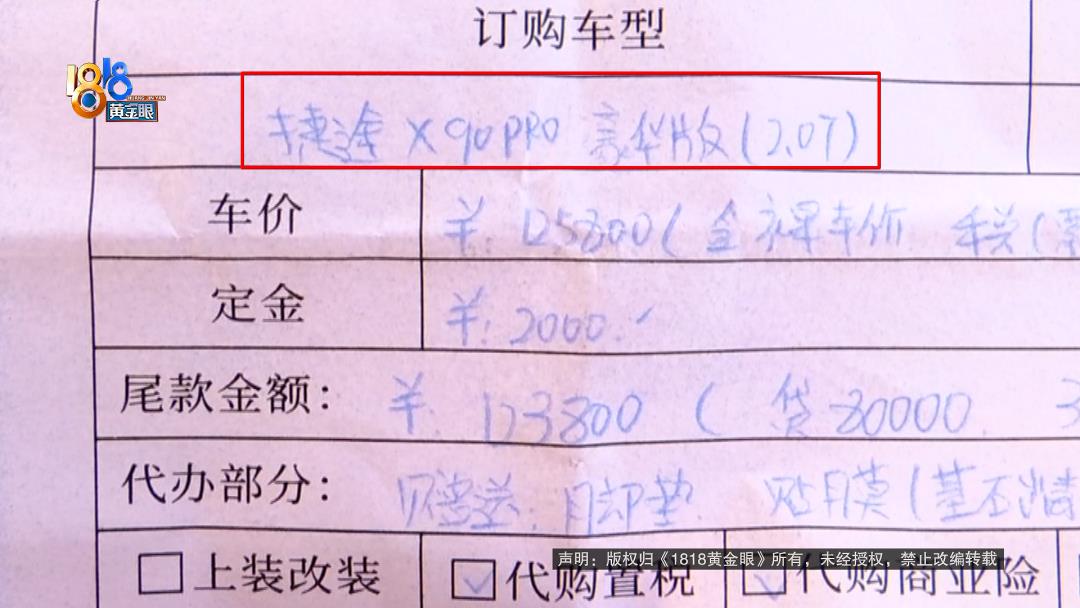 订购车型
1818
HUANG JIN YAN
黄金眼
捷途 X90PRO 豪华版(2.0T)
车价 ￥:125800(全裸车价 税(票
定金 ￥:2000.
尾款金额: ￥:123800 ( 贷80000
代办部分: 脚垫 贴膜(
□上装改装 ☑代购置税 ☑代购商业险
声明：版权归《1818黄金眼》所有，未经授权，禁止改编转载